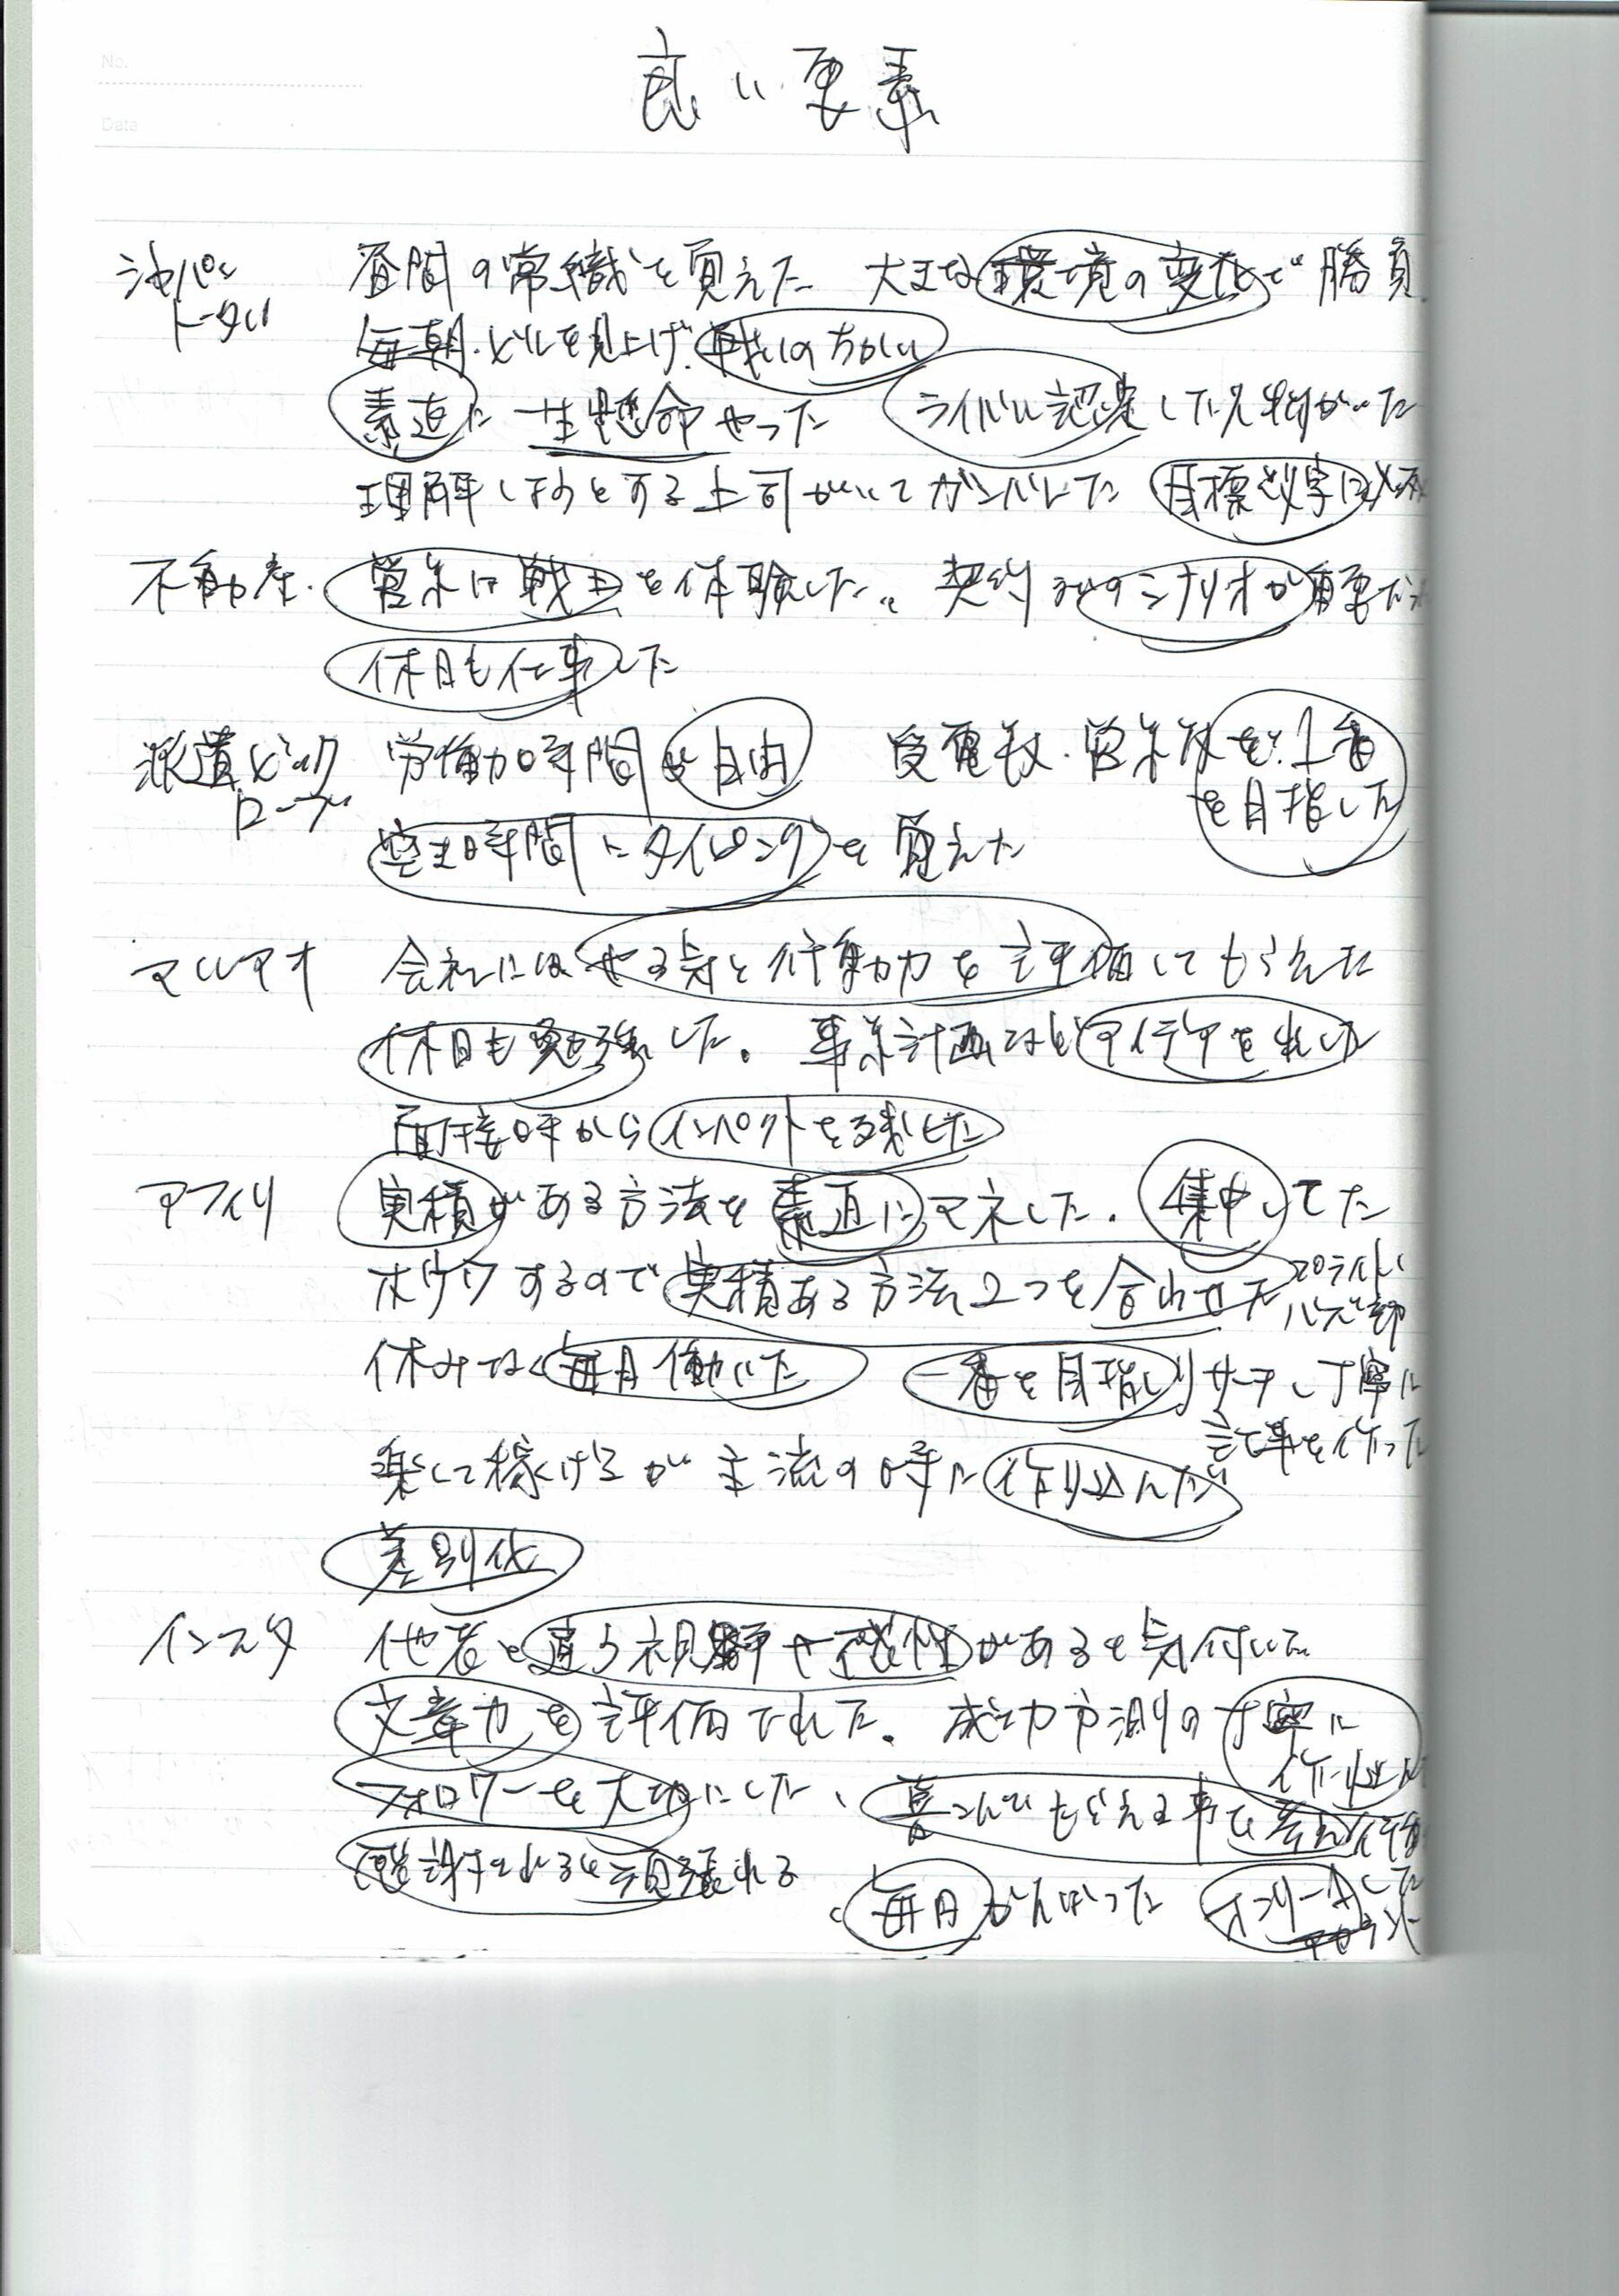 No.
Date
良い要素
昼間の常識を覚えた 大きな環境の変化で勝負
トータル
毎朝.ビルを見上げ.戦いのちかい
素直に一生懸命やった ライバル認定した人物がいた
理解しようとする上司がいてガンバレた 目標数字に必死
不動産. 営業は戦士を体験した。契約までのシナリオが重要だ
休日も仕事した
派遣ビック 労働時間が自由 受電数.営業数を.1番
ローブ を目指した
空き時間にタイピングを覚えた
マルアオ 会社にはやる気と行動力を評価してもらえた
休日も勉強した。事業計画などアイデアを出した
面接時からインパクトを残した
アフィリ 実積がある方法を素直にマネした. 集中してた
ホウワするので実積ある方法2つを合わせた
休みなく毎日働いた 一番を目指しリサーチし丁寧に
記事を作った
楽して稼げるが主流の時に作り込んだ
差別化
インスタ 他者と違う視野や感性があると気付いた
文章力を評価された。成功方測の丁寧に
作り込ん
フォロワーを大切にした、喜こんでもらえる事を考え行動
した
感謝されると頑張れる
毎日がんばった